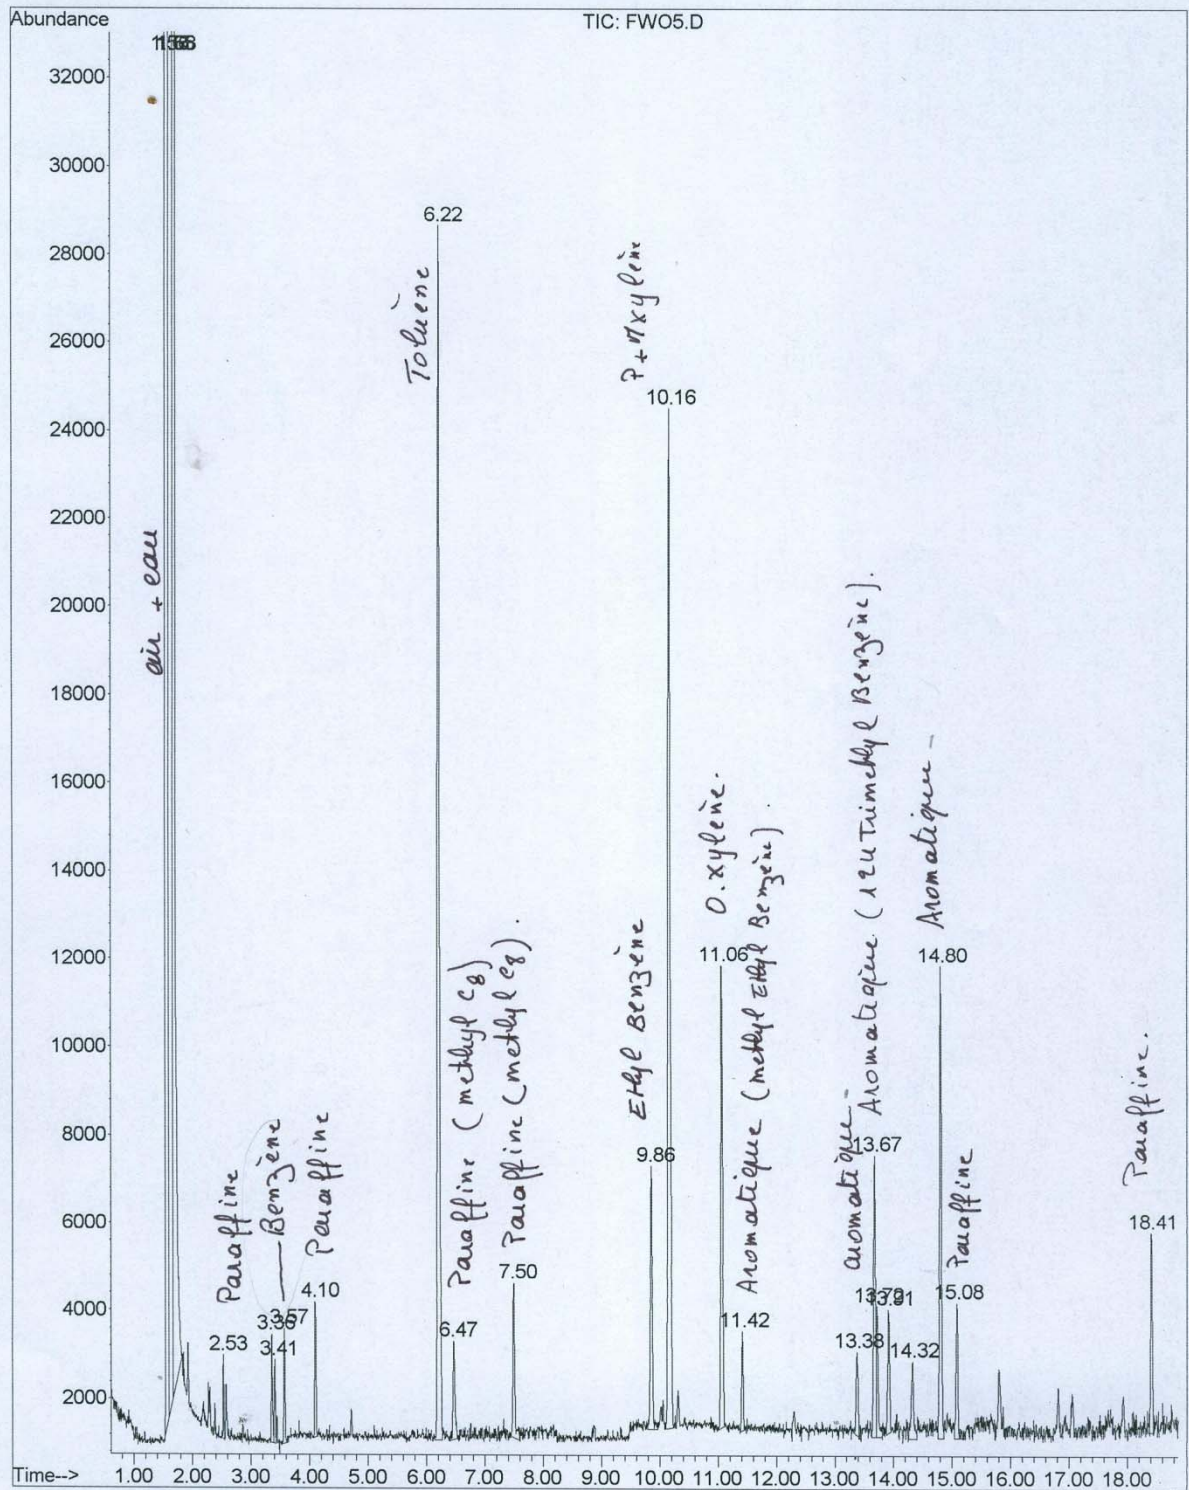 Abundance
TIC: FWO5.D
32000
30000
28000
26000
24000
22000
20000
18000
16000
14000
12000
10000
8000
6000
4000
2000
Time-->
1.00 2.00 3.00 4.00 5.00 6.00 7.00 8.00 9.00 10.00 11.00 12.00 13.00 14.00 15.00 16.00 17.00 18.00
air + eau
2.53
Paraffine
3.41
3.57
Benzène
4.10
Paraffine
6.22
Toluène
6.47
Paraffine (methyl c8)
7.50
Paraffine (methyl c8).
9.86
Ethyl Benzène
10.16
P+Mxylène
11.06
O.xylène.
11.42
Aromatique (methyl Ethyl Benzène).
13.38
aromatique-
13.67
Aromatique (124 Trimethyl Benzène).
13.91
14.32
14.80
Aromatique-
15.08
Paraffine
18.41
Paraffine.